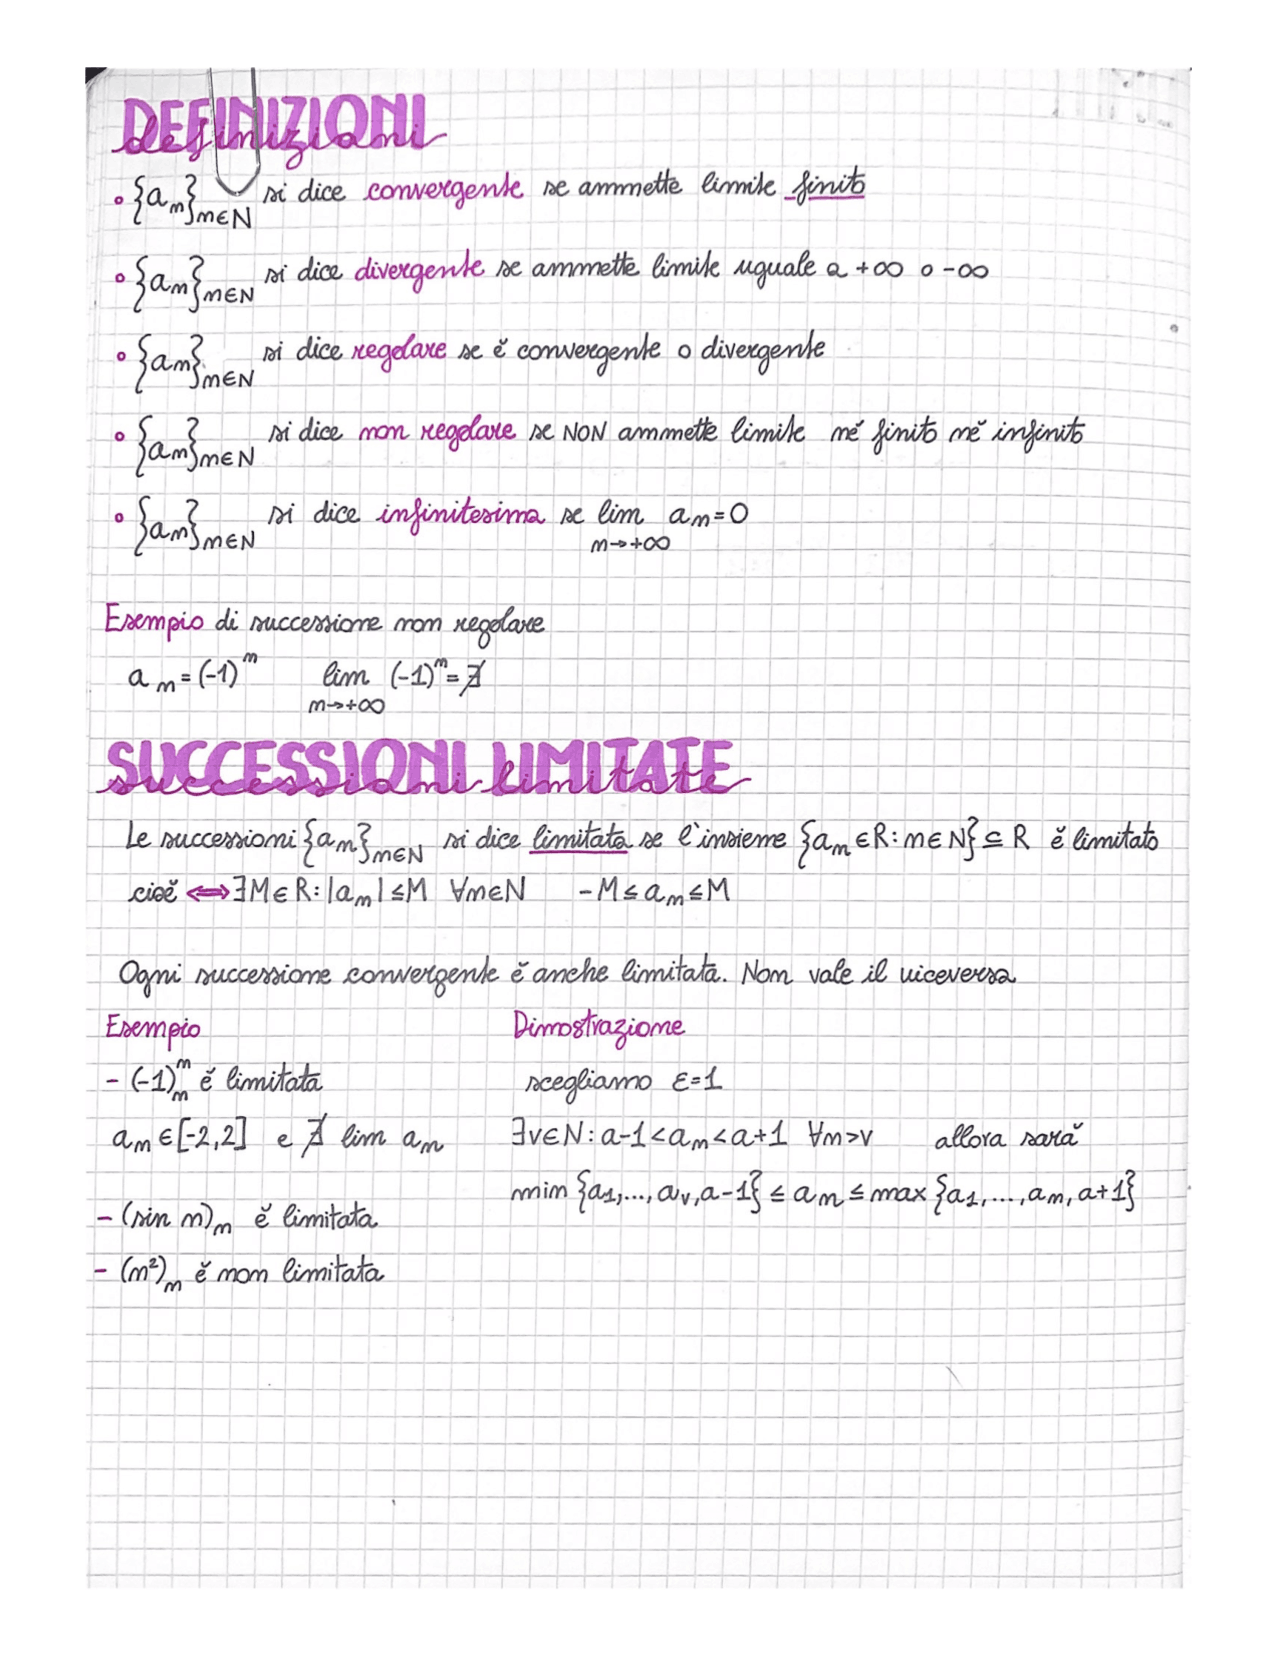 DEFINIZIONI
definizioni
• {an}n∈N si dice convergente se ammette limite finito
• {an}n∈N si dice divergente se ammette limite uguale a +∞ o -∞
• {an}n∈N si dice regolare se è convergente o divergente
• {an}n∈N si dice non regolare se NON ammette limite né finito né infinito
• {an}n∈N si dice infinitesima se lim an=0
n→+∞
Esempio di successione non regolare
an=(-1)^n lim (-1)^n=∄
n→+∞
SUCCESSIONI LIMITATE
successioni limitate
Le successioni {an}n∈N si dice limitata se l'insieme {an∈R: n∈N}⊆R è limitato
cioè ⟺ ∃M∈R: |an|≤M ∀n∈N -M≤an≤M
Ogni successione convergente è anche limitata. Non vale il viceversa
Esempio
- (-1)^n_n è limitata
an∈[-2,2] e ∄ lim an
- (sin n)n è limitata
- (n²)n è non limitata
Dimostrazione
scegliamo ε=1
∃ν∈N: a-1<an<a+1 ∀n>ν allora sarà
min {a1,...,aν,a-1} ≤ an ≤ max {a1,...,an,a+1}